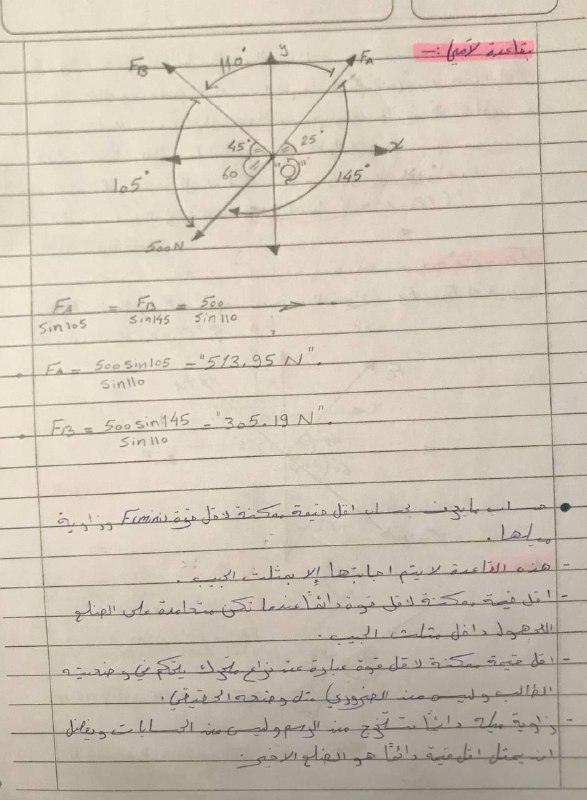 قاعدة لامي :-
F_B
110°
y
F_A
45°
25°
x
60
"Q"
105°
145°
500N
F_A / sin 105 = F_B / sin 145 = 500 / sin 110
F_A = 500 sin 105 / sin 110 = "513.95 N".
F_B = 500 sin 145 / sin 110 = "305.19 N".
حساب ما يعرف بحساب اقل قيمة ممكنة لاقل قوة Fminis وزاوية
ميلها .
- هذه القاعدة لا يتم اجابتها إلا بمثلث الجيب .
- اقل قيمة ممكنة لاقل قوة دائماً عندما تكن متعامدة على الضلع
المجهول داخل مثلث الجيب .
- اقل قيمة ممكنة لاقل قوة عبارة عن ذراع متحرك يتحكم في وضعيته
الطالب وليس من الضروري مثل وضعه الحقيقي .
- زاوية ميله دائماً من الرسم وليس من الحسابات ويفضل
ان يمثل اقل قيمة دائماً هو الضلع الاخير .